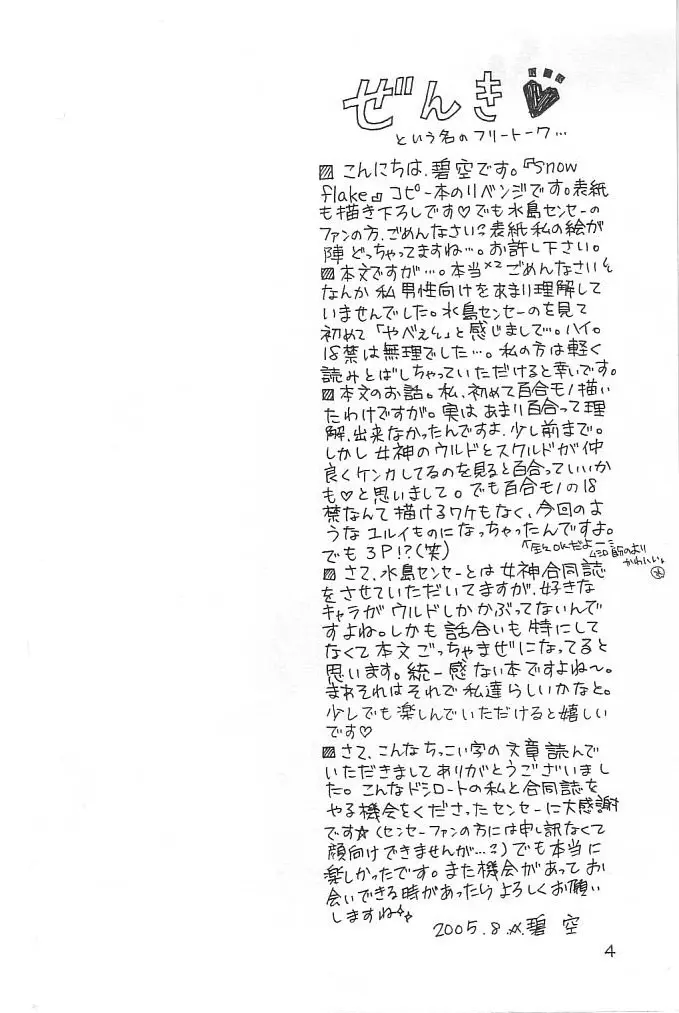 ぜんき♥
という名のフリートーク…
▨こんにちは、碧空です。『Snow
flake』コピー本のリベンジです。表紙
も描き下ろしです♡でも水島センセーの
ファンの方、ごめんなさい?表紙私の絵が
陣どっちゃってますね…。お許し下さい。
▨本文ですが…。本当×2ごめんなさい
なんか私男性向けをあまり理解して
いませんでした。水島センセーのを見て
初めて「やべぇ」と感じまして…。ハイ。
18禁は無理でした…。私の方は軽く
読みとばしちゃっていただけると幸いです。
▨本文のお話。私、初めて百合モノ描い
たわけですが。実はあまり百合って理
解、出来なかったんですよ、少し前まで。
しかし女神のウルドとスクルドが仲
良くケンカしてるのを見ると百合っていいか
も♡と思いまして。でも百合モノの18
禁なんて描けるワケもなく、今回のよ
うなユルイものになっちゃったんですよ。
でも3P!?(笑)
OKだよー
かわいい。
▨さて、水島センセーとは女神合同誌
をさせていただいてますが、好きな
キャラがウルドしかかぶってないんで
すよね。しかも話合いも特にして
なくて本文ごっちゃまぜになってると
思います。統一感ない本ですよね〜。
まぁそれはそれで私達らしいかなと。
少しでも楽しんでいただけると嬉しい
です♡
▨さて、こんなちっこい字の文章読んで
いただきましてありがとうございまし
た。こんなドシロートの私と合同誌を
やる機会をくださったセンセーに大感謝
です☆(センセーファンの方には申し訳なくて
顔向けできませんが…?)でも本当に
楽しかったです。また機会があってお
会いできる時があったらよろしくお願い
しますね
2005.8.碧空
4